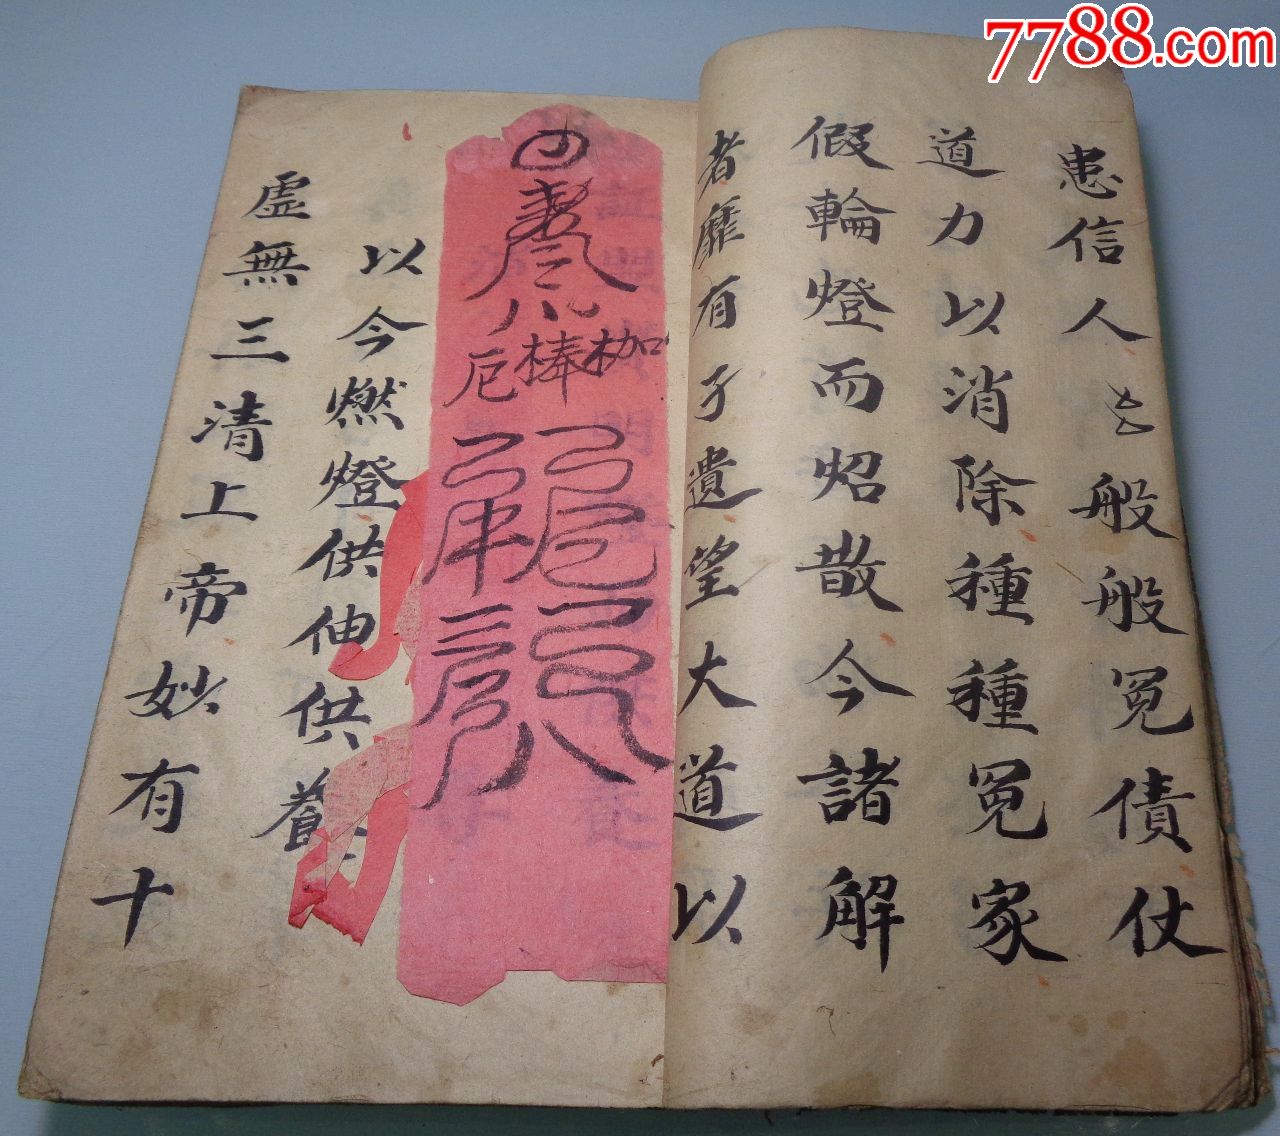 7788.com
患信人㠯般般冤債仗
道力以消除種種冤家
假輪燈而炤散今諸解
者靡有孑遺望大道以
枷
棒
厄
以今燃燈供伸供養
虛無三清上帝妙有十